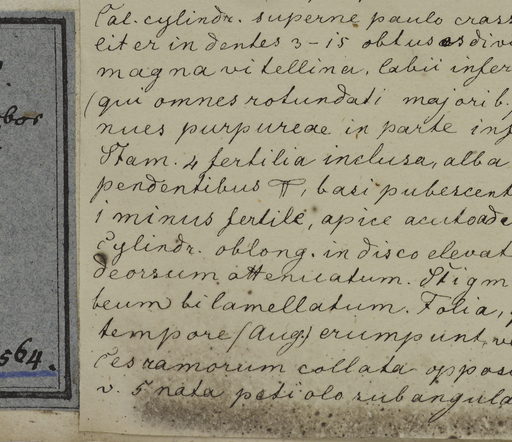 Cal. cylindr. superne paulo crass
liter in dentes 3-15 obtusos divi
magna vitellina, labii infer
(qui omnes rotundati majorib.
nues purpureae in parte inf
Stam. 4 fertilia inclusa, alba
pendentibus, basi pubescent
1 minus fertile, apice acuto
cylindr. oblong. in disco elevat
deorsum attenuatum. Stigm
beum bilamellatum. Folia,
tempore (Aug.) erumpunt, ve
ces ramorum collata opposi
v. 5 nata petiolo subangula
564.